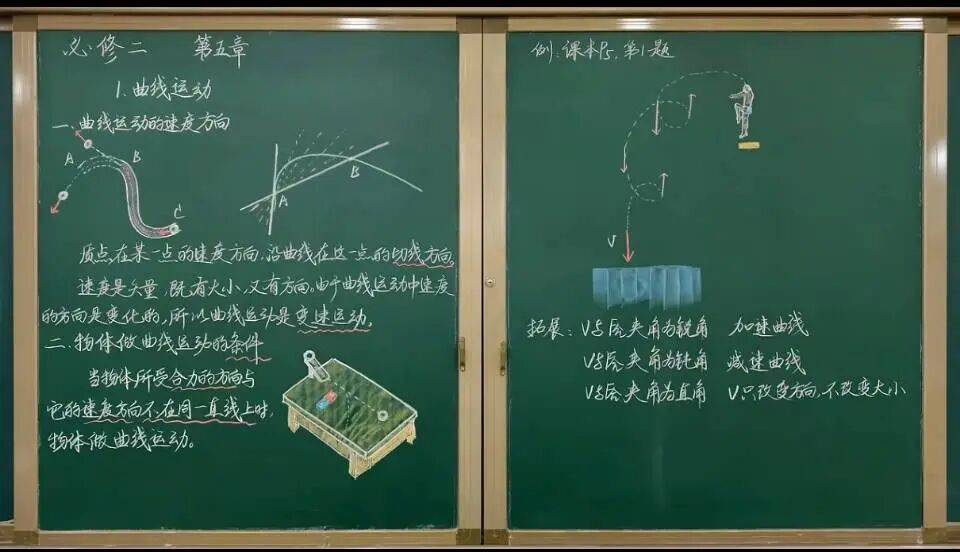 必修二 第五章
1.曲线运动
一、曲线运动的速度方向
A
B
C
A
B
质点在某一点的速度方向,沿曲线在这一点的切线方向。
速度是矢量,既有大小,又有方向。由于曲线运动中速度
的方向是变化的,所以曲线运动是变速运动。
二、物体做曲线运动的条件
当物体所受合力的方向与
它的速度方向不在同一直线上时,
物体做曲线运动。
例:课本P5,第1题
V
拓展:V与F合夹角为锐角 加速曲线
V与F合夹角为钝角 减速曲线
V与F合夹角为直角 V只改变方向,不改变大小